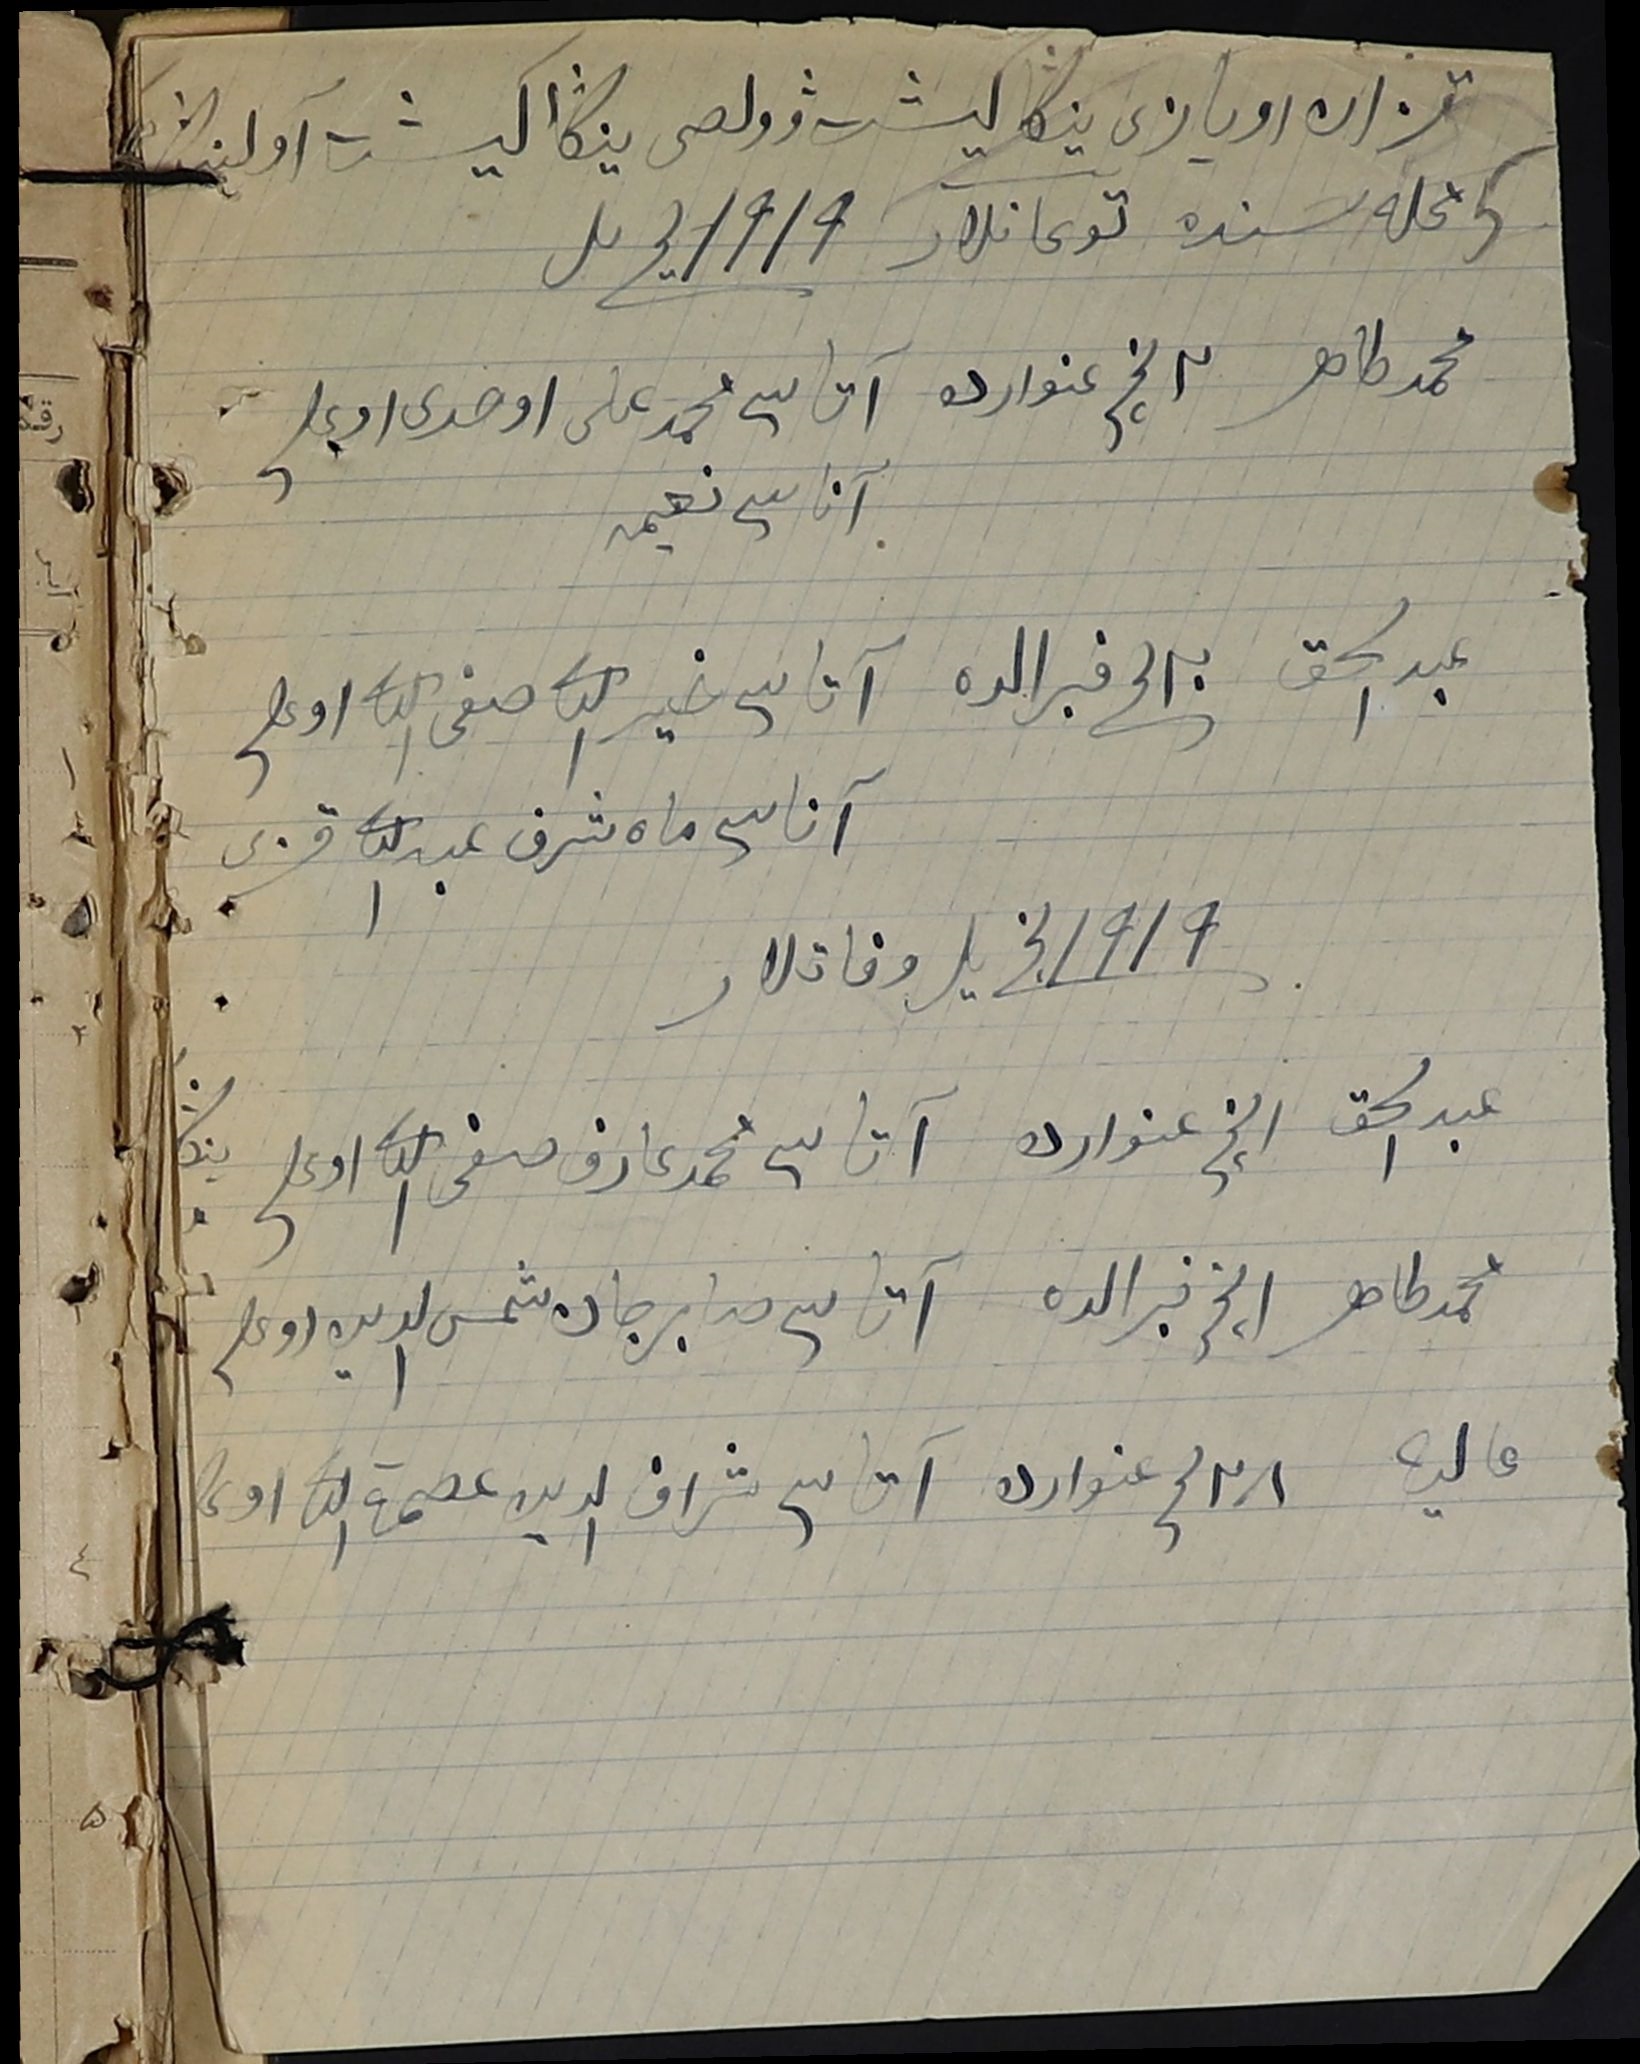 قزان اویازی ینکا کیشت ڤولصی ینکا کیشت آولینڭ
محله سنده توغانلار 1919 نچی یل
محمد طاهر ٢ نچی غنواردە آتاسی محمد علی اوحدی اوغلی
آناسی نعیمه
عبد الحق ٢٠ نچی فبرالده آتاسی خیر الله صفی الله اوغلی
آناسی ماه شرف عبد الله قزی
1919 نچی یل وفاتلار
عبد الحق ١ نچی غنوارده آتاسی محمد عارف صفی الله اوغلی
محمد طاهر ١ نچی فبرالده آتاسی صابرجان شمس الدین اوغلی
عالیه ٢٨ نچی غنوارده آتاسی شراف الدین عصمة الله اوغلی
رقم
١
٢
٣
٤
٥